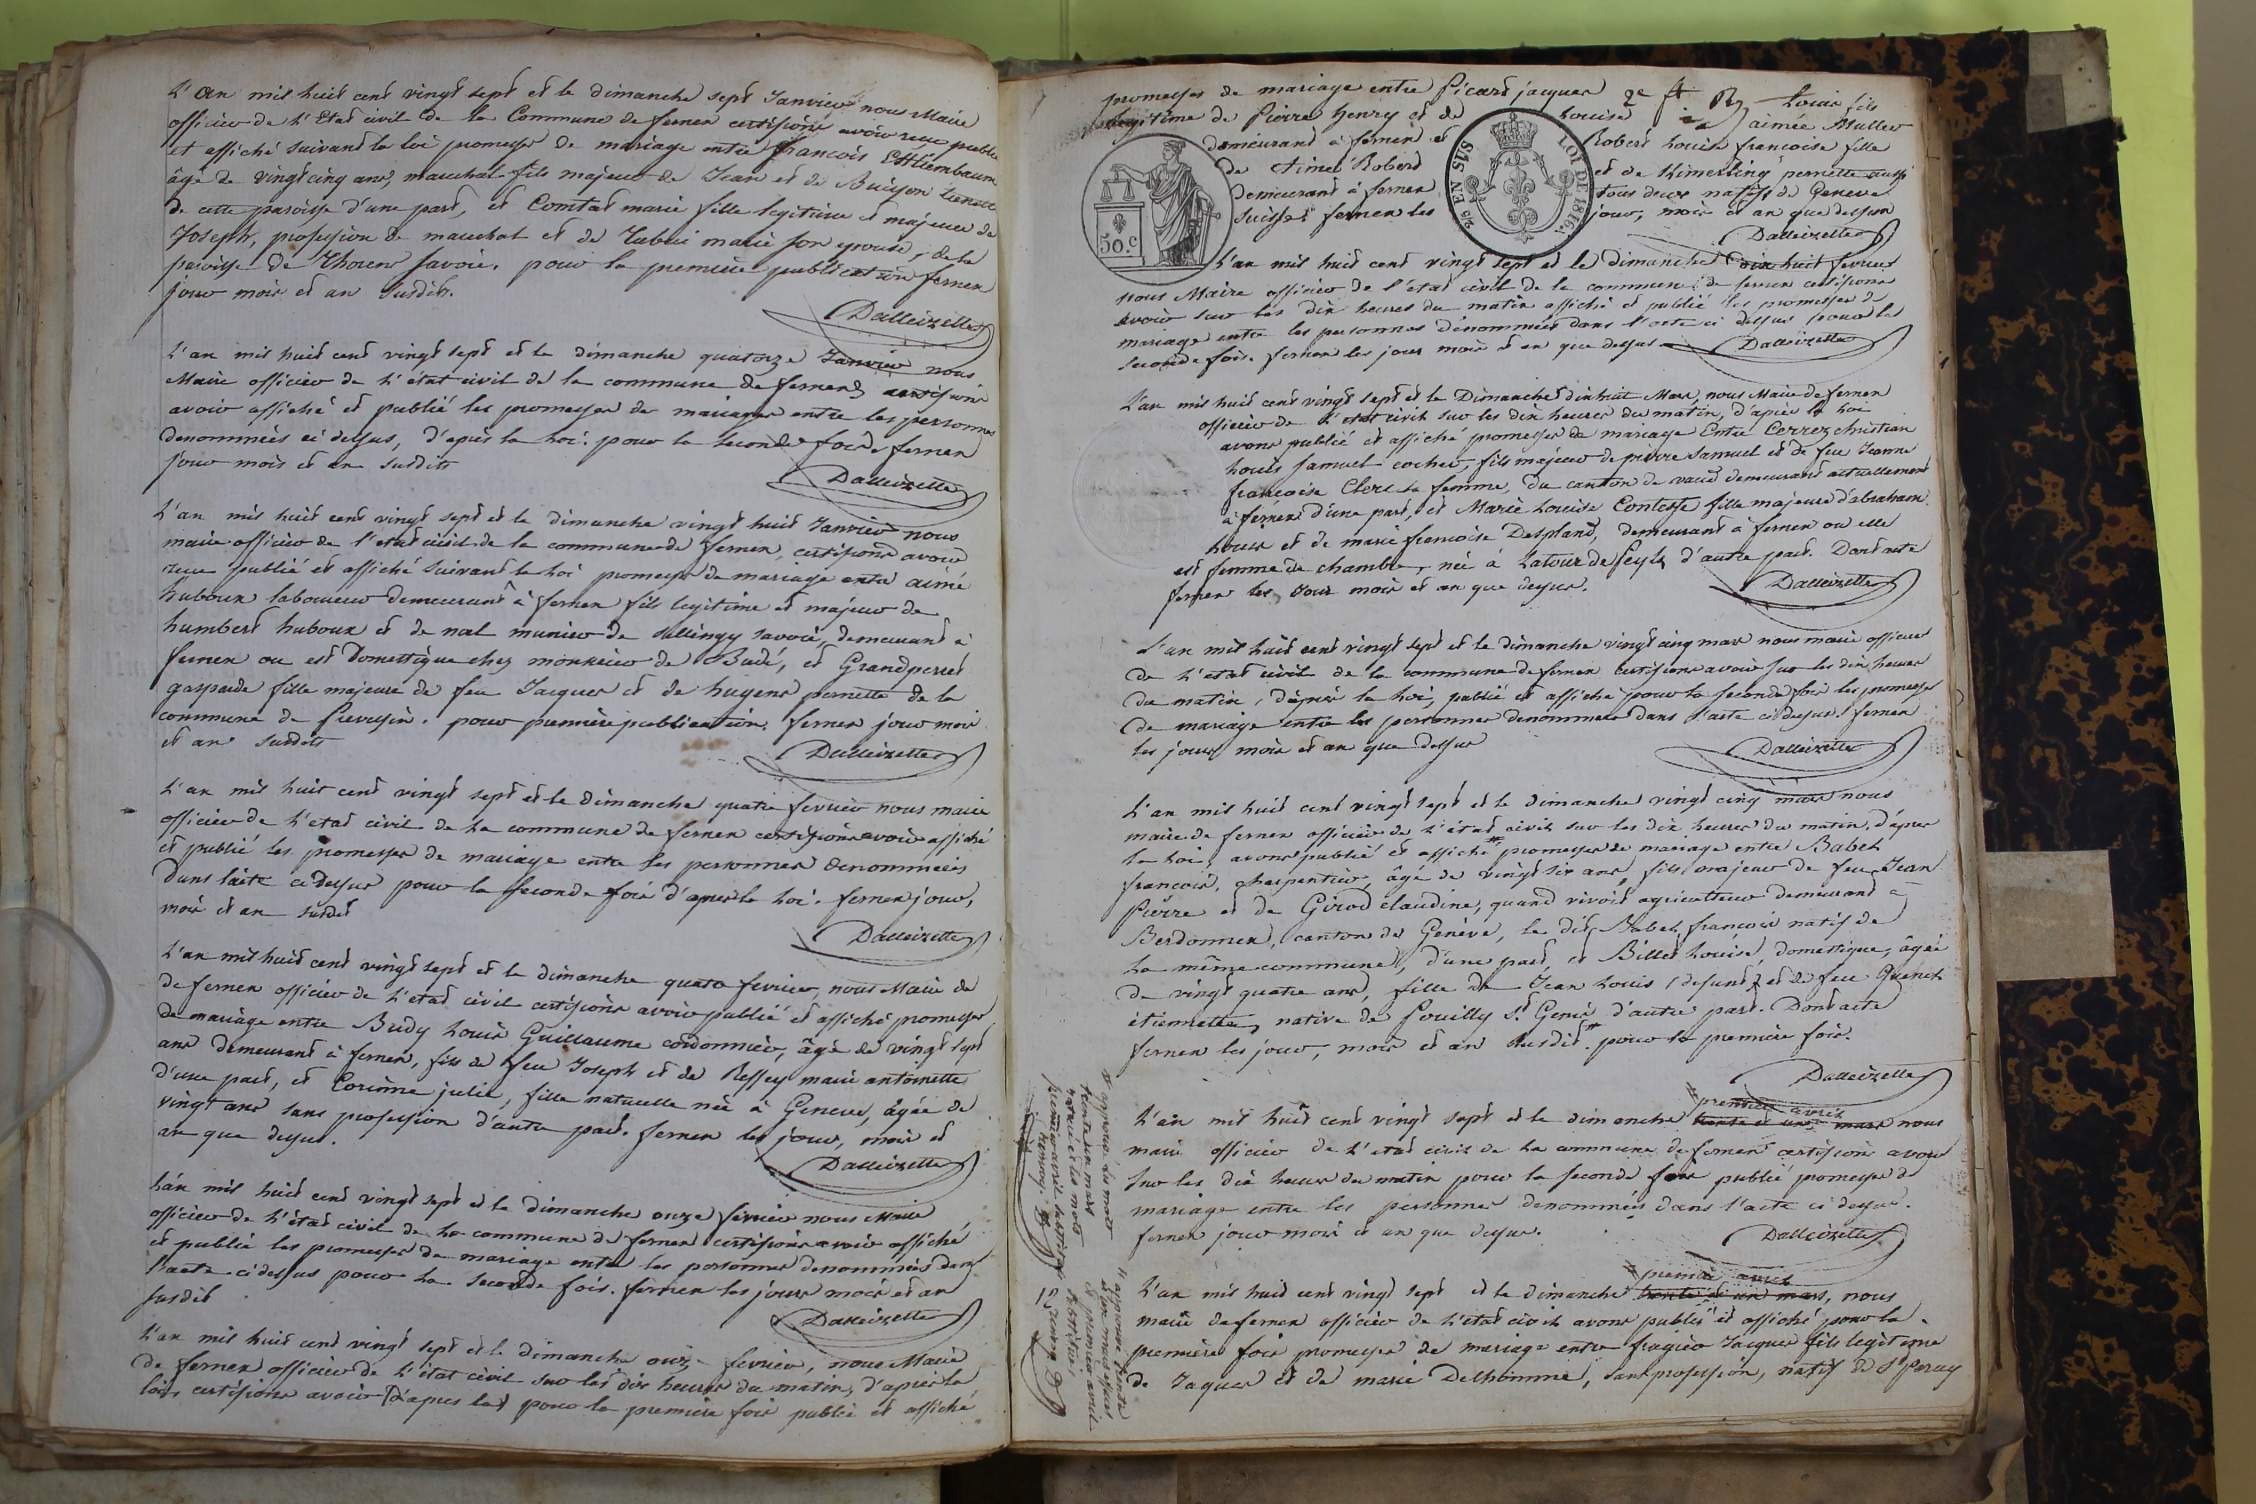 L'an mil huit cent vingt sept et le dimanche sept Janvier nous Maire
officier de l'Etat civil de la Commune de fernex certifions avoir publié
et affiché suivant la loi promesses de mariage entre françois
âgé de vingt cinq ans, marechal fils majeur de Jean et de
de cette paroisse d'une part, et Comtat marie fille legitime et majeure de
Joseph, profession de marechal et de marie son epouse, de la
paroisse de Thorens savoie. pour la première publication fernex
jour mois et an susdits.
Dalleizette
L'an mil huit cent vingt sept et le dimanche quatorze Janvier nous
Maire officier de l'état civil de la commune de fernex certifions
avoir affiché et publié les promesses de mariages entre les personnes
denommées ci dessus, d'après la loi. pour la seconde fois. fernex
jour mois et an susdits
Dalleizette
L'an mil huit cent vingt sept et le dimanche vingt huit Janvier nous
maire officier de l'etat civil de la commune de fernex, certifions avoir
publié et affiché suivant la loi promesses de mariage entre aimé
huboux laboureur demeurant à fernex fils legitime et majeur de
humbert huboux et de savoie, demeurant à
fernex ou est Domestique chez monsieur de Budé, et Grandperret
gasparde fille majeure de feu Jacques et de hugens pernette de la
commune de Prevessin. pour première publication. fernex jour mois
et an susdits
Dalleizette
L'an mil huit cent vingt sept et le dimanche quatre fevrier nous maire
officier de l'etat civil de la commune de fernex certifions avoir affiché
et publié les promesses de mariage entre les personnes denommées
dans l'acte ci dessus pour la seconde fois d'après la loi. fernex jour,
mois et an susdit
Dalleizette
L'an mil huit cent vingt sept et le dimanche quatre fevrier, nous Maire de
de fernex officier de l'etat civil certifions avoir publié et affiché promesses
de mariage entre Bridy Louis Guillaume cordonnier, âgé de vingt sept
ans demeurant à fernex, fils de feu Joseph et de Reffey marie antoinette
d'une part, et Corinne julie, fille naturelle née à Geneve, âgée de
vingt ans sans profession d'autre part. fernex les jour, mois et
an que dessus.
Dalleizette
L'an mil huit cent vingt sept et le dimanche onze fevrier nous Maire
officier de l'état civil de la commune de fernex certifions avoir affiché
et publié les promesses de mariage entre les personnes denommées dans
l'acte ci dessus pour la seconde fois. fernex les jours mois et an
susdit
Dalleizette
L'an mil huit cent vingt sept et le dimanche onze fevrier, nous Maire
de fernex officier de l'état civil sur les dix heures du matin, d'après la
loi, certifions avoir (d'apres la) pour la première fois publié et affiché
promesses de mariage entre Picard jacques Louis fils
legitime de Pierre henry et de Louise aimée Muller
demeurant à fernex et Robert Louise francoise fille
de Aimé Robert et de Kimerling pernette aussi
Demeurant à fernex tous deux natifs de Geneve
Suisse. fernex les jour, mois et an que dessus
50.c
25 EN SUS
LOI DE 1816.
Dalleizette
L'an mil huit cent vingt sept et le dimanche dix huit fevrier
nous Maire officier de l'état civil de la commune de fernex certifions
avoir sur les dix heures du matin affiché et publié les promesses de
mariage entre les personnes dénommées dans l'acte ci dessus pour la
seconde fois. fernex les jour mois et an que dessus
Dalleizette
L'an mil huit cent vingt sept et le Dimanche dix huit Mars, nous Maire de fernex
officier de l'etat civil sur les dix heures du matin, d'après la loi
avons publié et affiché promesses de mariage Entre Cerrez christian
Louis samuel cocher, fils majeur de pierre samuel et de feu Jeanne
françoise Clerc sa femme, du canton de vaud demeurant actuellement
à fernex d'une part, et Marie Louise Contesse fille majeure d'abraham
Louis et de marie francoise Despland, demeurant à fernex ou elle
est femme de chambre, née à Latour de Peylz d'autre part. Dont acte
fernex les jour mois et an que dessus.
Dalleizette
L'an mil huit cent vingt sept et le dimanche vingt cinq mars nous maire officier
de l'etat civil de la commune de fernex certifions avoir sur les dix heures
du matin, d'après la loi, publié et affiché pour la seconde fois les promesses
de mariage entre les personnes denommées dans l'acte ci dessus. fernex
les jours mois et an que dessus
Dalleizette
L'an mil huit cent vingt sept et le dimanche vingt cinq mars nous
maire de fernex officier de l'état civil sur les dix heures du matin, d'après
la loi, avons publié et affiché promesses de mariage entre Babel
françois, charpentier, âgé de vingt six ans, fils majeur de feu Jean
Pierre et de Girod claudine, quand vivoit agriculteur demeurant à
Berdonnex, canton de Genève, le dit Babel françois natif de
la même commune, d'une part, et Billet Louise, domestique, âgée
de vingt quatre ans, fille de Jean Louis (defunt) et de feu Quenet
etiennette, native de Pouilly St Genis d'autre part. Dont acte
fernex les jour, mois et an susdit. pour la première fois.
Dalleizette
premier avril
L'an mil huit cent vingt sept et le dimanche trente et un mars nous
maire officier de l'etat civil de la commune de fernex certifions avoir
sur les dix heures du matin pour la seconde fois publié promesses de
mariage entre les personnes denommées dans l'acte ci dessus.
fernex jour mois et an que dessus.
Dalleizette
premier avril
L'an mil huit cent vingt sept et le dimanche trente et un mars, nous
maire de fernex officier de l'etat civil avons publié et affiché pour la
première fois promesses de mariage entre fragier Jacques fils legitime
de Jaques et de marie Delhomme, sans profession, natif de St Peray
approuvé les mots
trente un mars
et les mots
premier avril
approuvé trente
et un mars
et premier avril